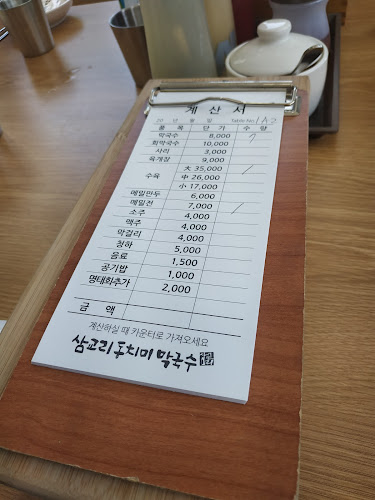 계 산 서
20 년 월 일 Table No. 1A-2
품 목 단 가 수 량
막국수 8,000 7
회막국수 10,000
사리 3,000
육개장 9,000
수육 大 35,000 /
中 26,000
小 17,000
메밀만두 6,000
메밀전 7,000 /
소주 4,000
맥주 4,000
막걸리 4,000
청하 5,000
음료 1,500
공기밥 1,000
명태회추가 2,000
금 액
계산하실 때 카운터로 가져오세요
삼교리 동치미 막국수